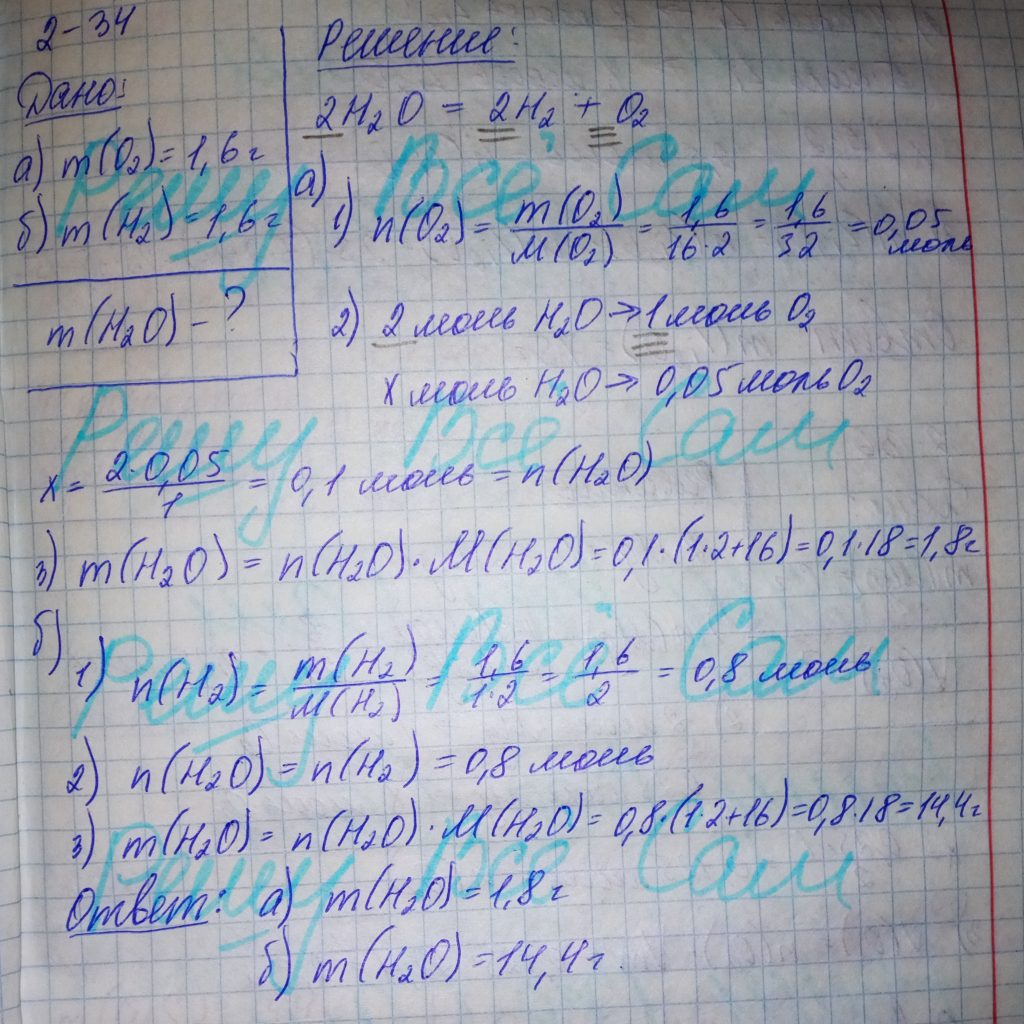 2-34
Дано:
а) m(O₂) = 1,6 г
б) m(H₂) = 1,6 г
m(H₂O) - ?
Решение:
2H₂O = 2H₂ + O₂
а)
1) n(O₂) = m(O₂)/M(O₂) = 1,6/16·2 = 1,6/32 = 0,05 моль
2) 2 моль H₂O → 1 моль O₂
x моль H₂O → 0,05 моль O₂
x = 2·0,05/1 = 0,1 моль = n(H₂O)
3) m(H₂O) = n(H₂O)·M(H₂O) = 0,1·(1·2+16) = 0,1·18 = 1,8г
б)
1) n(H₂) = m(H₂)/M(H₂) = 1,6/1·2 = 1,6/2 = 0,8 моль
2) n(H₂O) = n(H₂) = 0,8 моль
3) m(H₂O) = n(H₂O)·M(H₂O) = 0,8·(1·2+16) = 0,8·18 = 14,4г
Ответ: а) m(H₂O) = 1,8 г
б) m(H₂O) = 14,4 г.
Решу Всё Сам
Решу Всё Сам
Решу Всё Сам
Решу Всё Сам